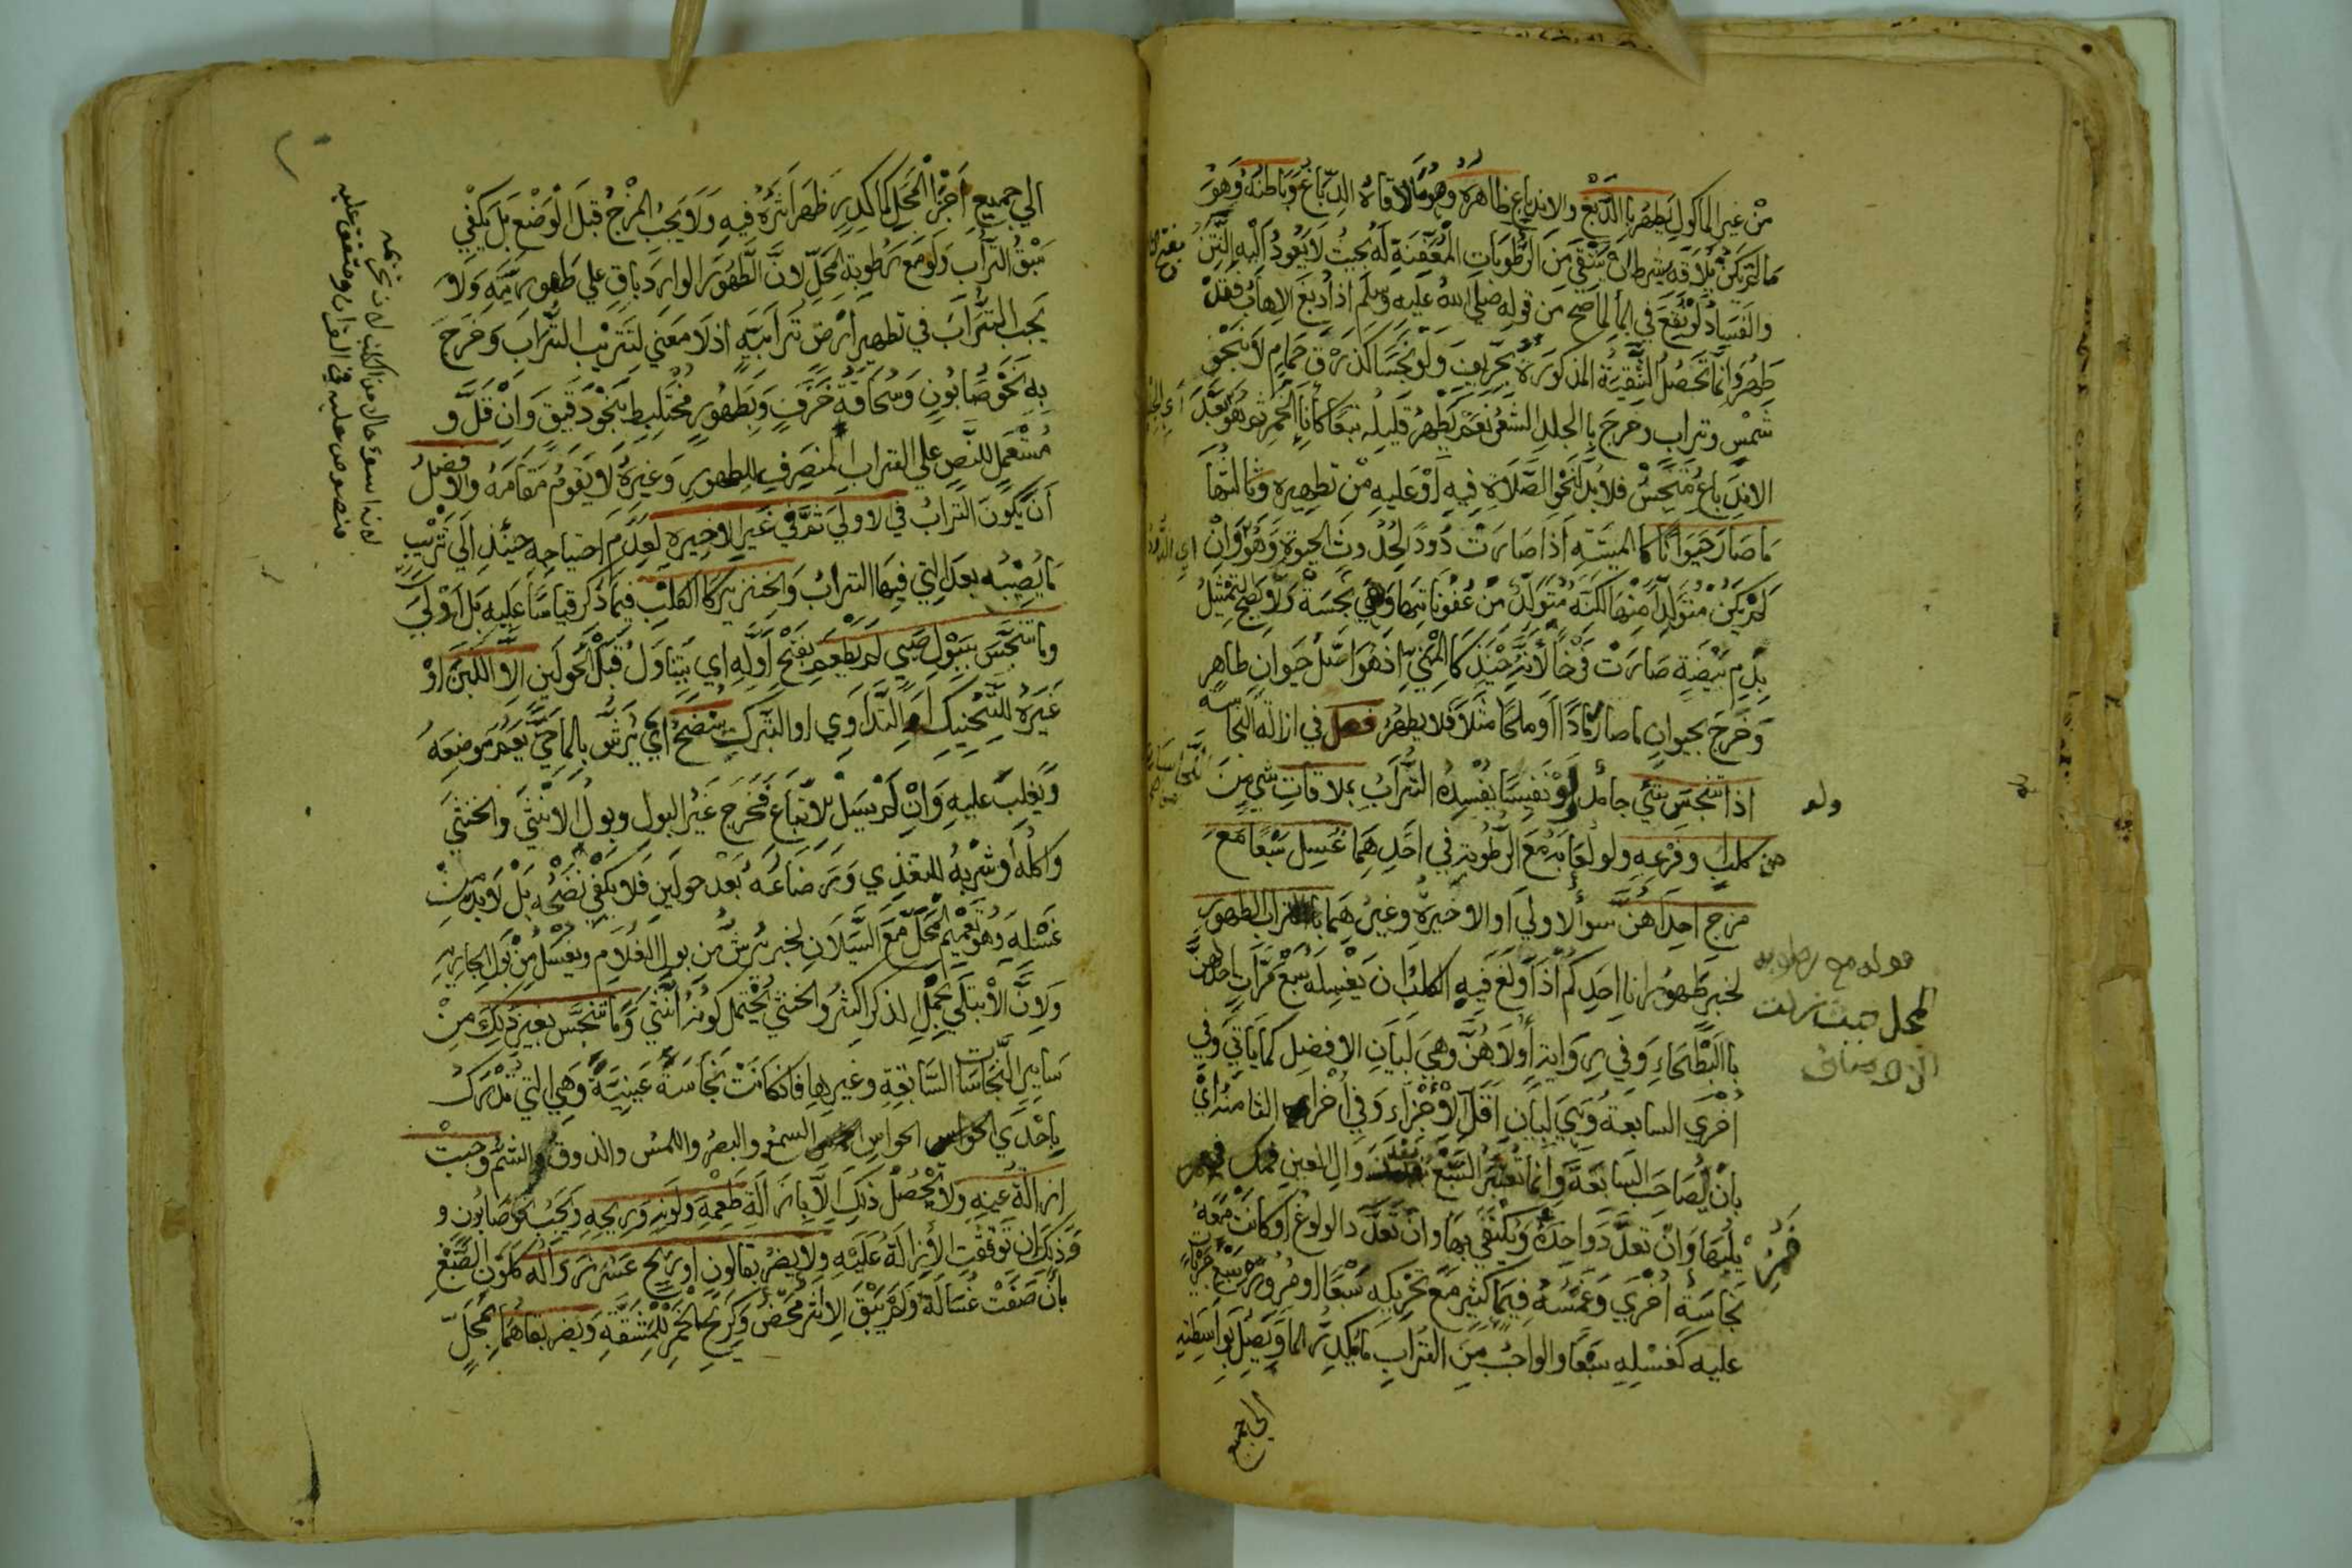 من غير الماكول يطهر بالدبغ والاندباغ ظاهره وهو ما لاقاه الدباغ وباطنه وهو
ما لم يكن يلاقه بشرط ان ينتقي من الرطوبات المعفنة له بحيث لا يعود اليه النتن
والفساد لو نقع في الما لما صح من قوله صلى الله عليه وسلم اذا دبغ الاهاب فقد
طهر وانما تحصل التنقية المذكورة بحريف ولو نجسا كذرق حمام لا بنحو
شمس وتراب وخرج بالجلد الشعر نعم يطهر قليله تبعا كانا الخمر ثم هو بعد
الاندباغ متنجس فلا بد لنحو الصلاة فيه او عليه من تطهيره وثالثها
ما صار حيوانا كالميتة اذا صارت دودا لحدوث الحيوة وهو وان
لم يكن متولدا منها لكنه متولد من عفوناتها وهي نجسة ولا يصح التمثيل
بدم بيضة صارت فرخا لانه حينئذ كالمني اذ هو اصل حيوان طاهر
وخرج بحيوان ما صار رمادا او ملحا مثلا فلا يطهر فصل في ازالة النجاسة
اذا تنجس شئ جامد ولو نفيسا يفسده التراب بملاقات شي من
كلب وفرعه ولو لعابه مع الرطوبة في احدهما غسل سبعا مع
مزج احداهن سوا الاولي او الاخيرة وغيرهما بالتراب الطهور
لخبر طهور انا احدكم اذا ولغ فيه الكلب ان يغسله سبع مرات احداهن
بالبطحاء وفي رواية اولاهن وهي لبيان الافضل كما ياتي وفي
اخرى السابعة وهي لبيان اقل الاجزاء وفي اخرى الثامنة اي
بان يصاحب السابعة وانما تعتبر السبع بعد زوال العين فمزيلها
يلها وان تعدد واحدة ويكتفي بها وان تعدد الولوغ او كانت معه
نجاسة اخرى وغمسه فيما كثير مع تحريكه سبعا او مرور سبع جريات
عليه كغسله سبعا والواجب من التراب ما يكدر الما ويصل بواسطته
الي جميع
ولو
من
قوله مع رطوبة
المحل حيث زالت
الاوصاف
الي جميع اجزا المحل كالكدر ظهر اثره فيه ولا يجب المزج قبل الوضع بل يكفي
سبق التراب ولو مع رطوبة المحل لان الطهور الوارد باق علي طهوريته ولا
يجب التراب في تطهير ارض ترابية اذ لا معني لتتريب التراب وخرج
به نحو صابون وسحاقة خزف وبطهور مختلط بنحو دقيق وان قل و
مستعمل للنص علي التراب المنصرف للطهور وغيره لا يقوم مقامه والافضل
ان يكون التراب في الاولي ثم في غير الاخيرة لعدم احتياجه حينئذ الي تتريب
ما يصيبه بعد التي فيها التراب والخنزير كالكلب فيما ذكر قياسا عليه بل اولي
وما تنجس ببول صبي لم يطعم بفتح اوله اي يتناول قبل الحولين الا اللبن او
غيره للتحنيك او التداوي او التبرك ينضح اي يرش بالما حتي يعم موضعه
ويغلب عليه وان لم يسل بلا اتباع فخرج غير البول وبول الانثي والخنثي
واكله او شربه للتغذي ورضاعه بعد حولين فلا يكفي نضحه بل لا بد من
غسله وهو تعميم المحل مع السيلان لخبر يرش من بول الغلام ويغسل من بول الجارية
ولان الابتلي بحمل الذكر اكثر والخنثي يحتمل كونه انثي وما تنجس بغير ذلك من
ساير النجاسات السابقة وغيرها فان كانت نجاسة عينية وهي التي تدرك
باحدي الحواس السمع والبصر واللمس والذوق والشم وجبت
ازالة عينه ولا تحصل ذلك الا بازالة طعمه ولونه وريحه ويجب نحو صابون و
قرذلك ان توقفت الازالة عليه ولا يضر بقا لون او ريح عسر زواله كلون الصبغ
بان صفت غسالته ولم يبق الا اثر محض وكريح الخمر للمشقة ويضر بقاهما بمحل
لانه اسوء حالا من الكلب لان تحريمه
منصوص عليه في القران ومتفق عليه